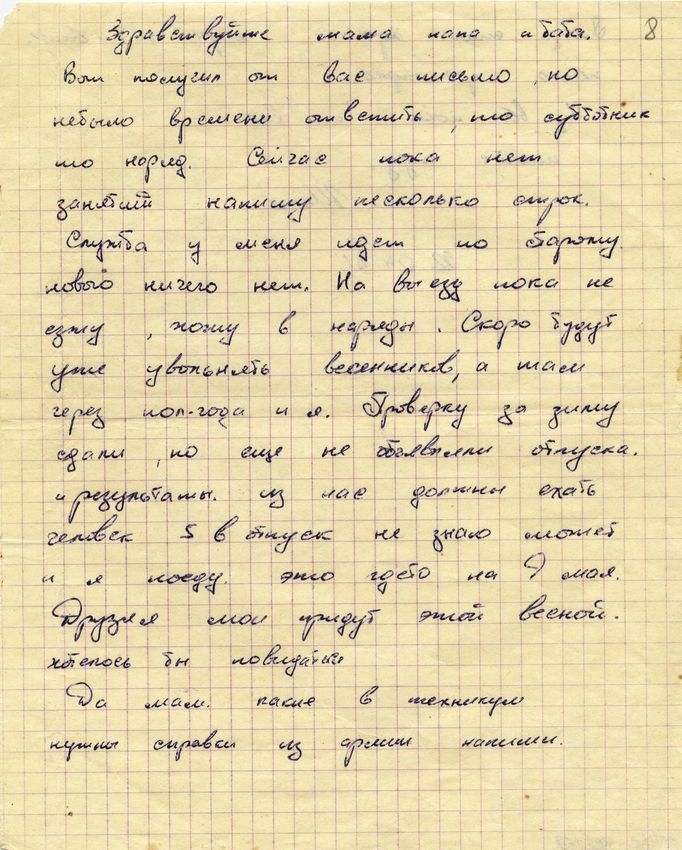 Здравствуйте мама папа и баба. 8
Вот получил от Вас письмо, но
небыло времени ответить, то субботник
то наряд. Сейчас пока нет
занятий напишу несколько строк.
Служба у меня идет по старому.
нового ничего нет. На выезд пока не
езжу, хожу в наряды. Скоро будут
уже увольнять весенников, а там
через пол-года и я. Проверку за зиму
сдали, но еще не объявляли отпуска.
и результаты. из нас должны ехать
человек 5 в отпуск не знаю может
и я поеду. это гдето на 9 мая.
Друзья мои придут этой весной.
хотелось бы повидаться
Да мам. какие в техникум
нужны справки из армии напиши.